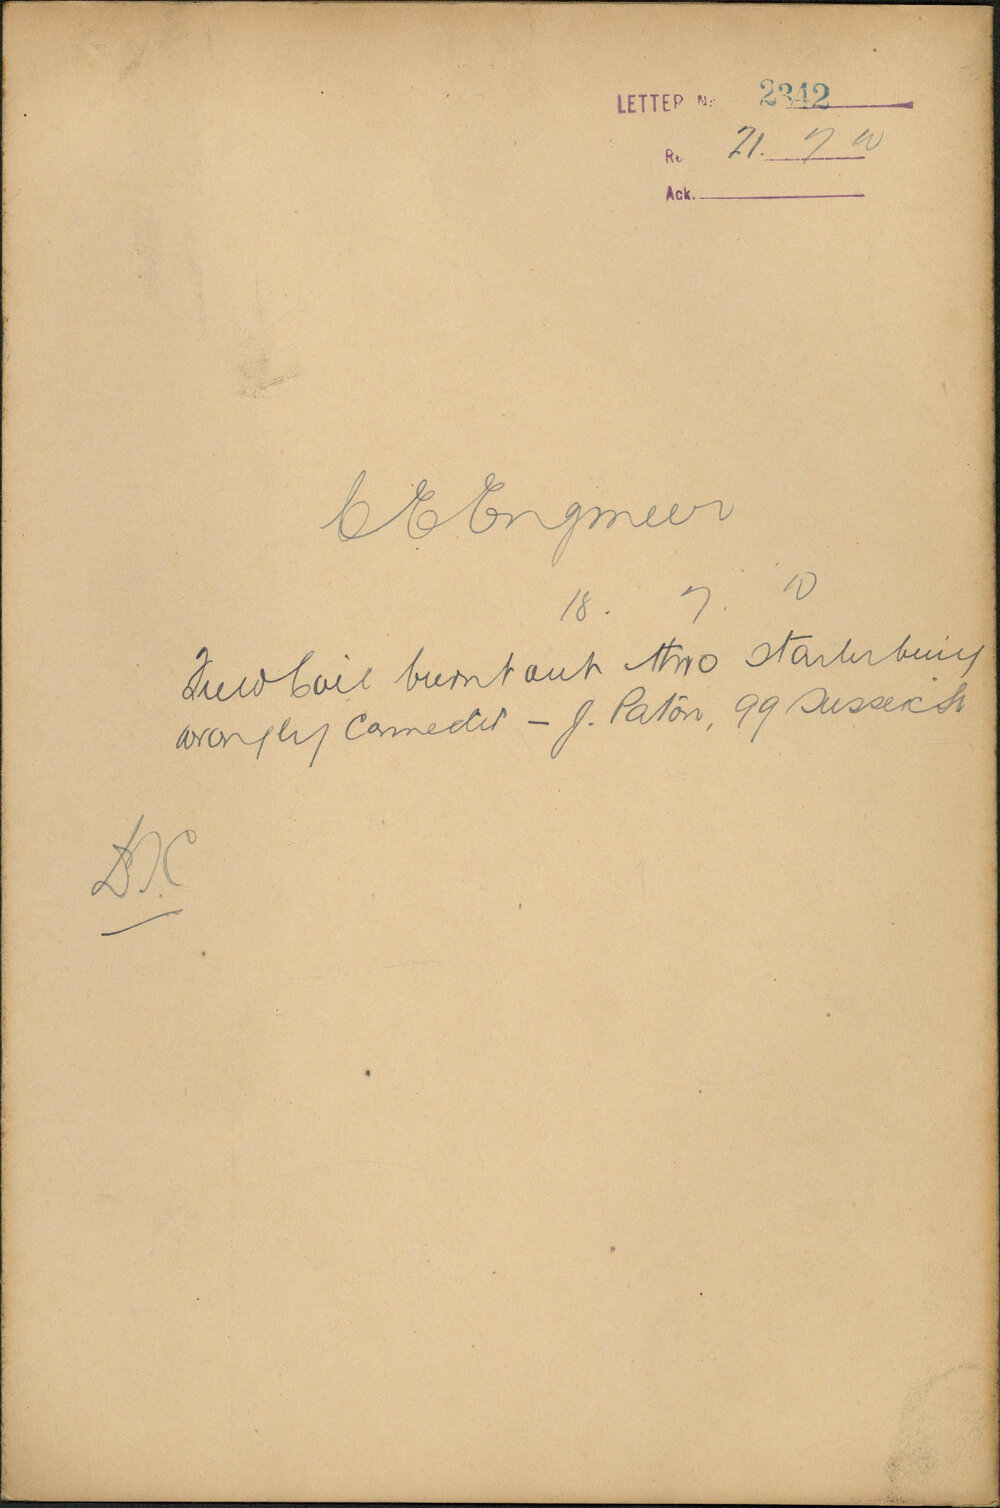 LETTER No 2342
Re 21. 7 10
Ack.
C E Engineer
18. 7. 10
Field Coil burnt out thro starter being
wrongly Connected - J. Paton, 99 Sussex St